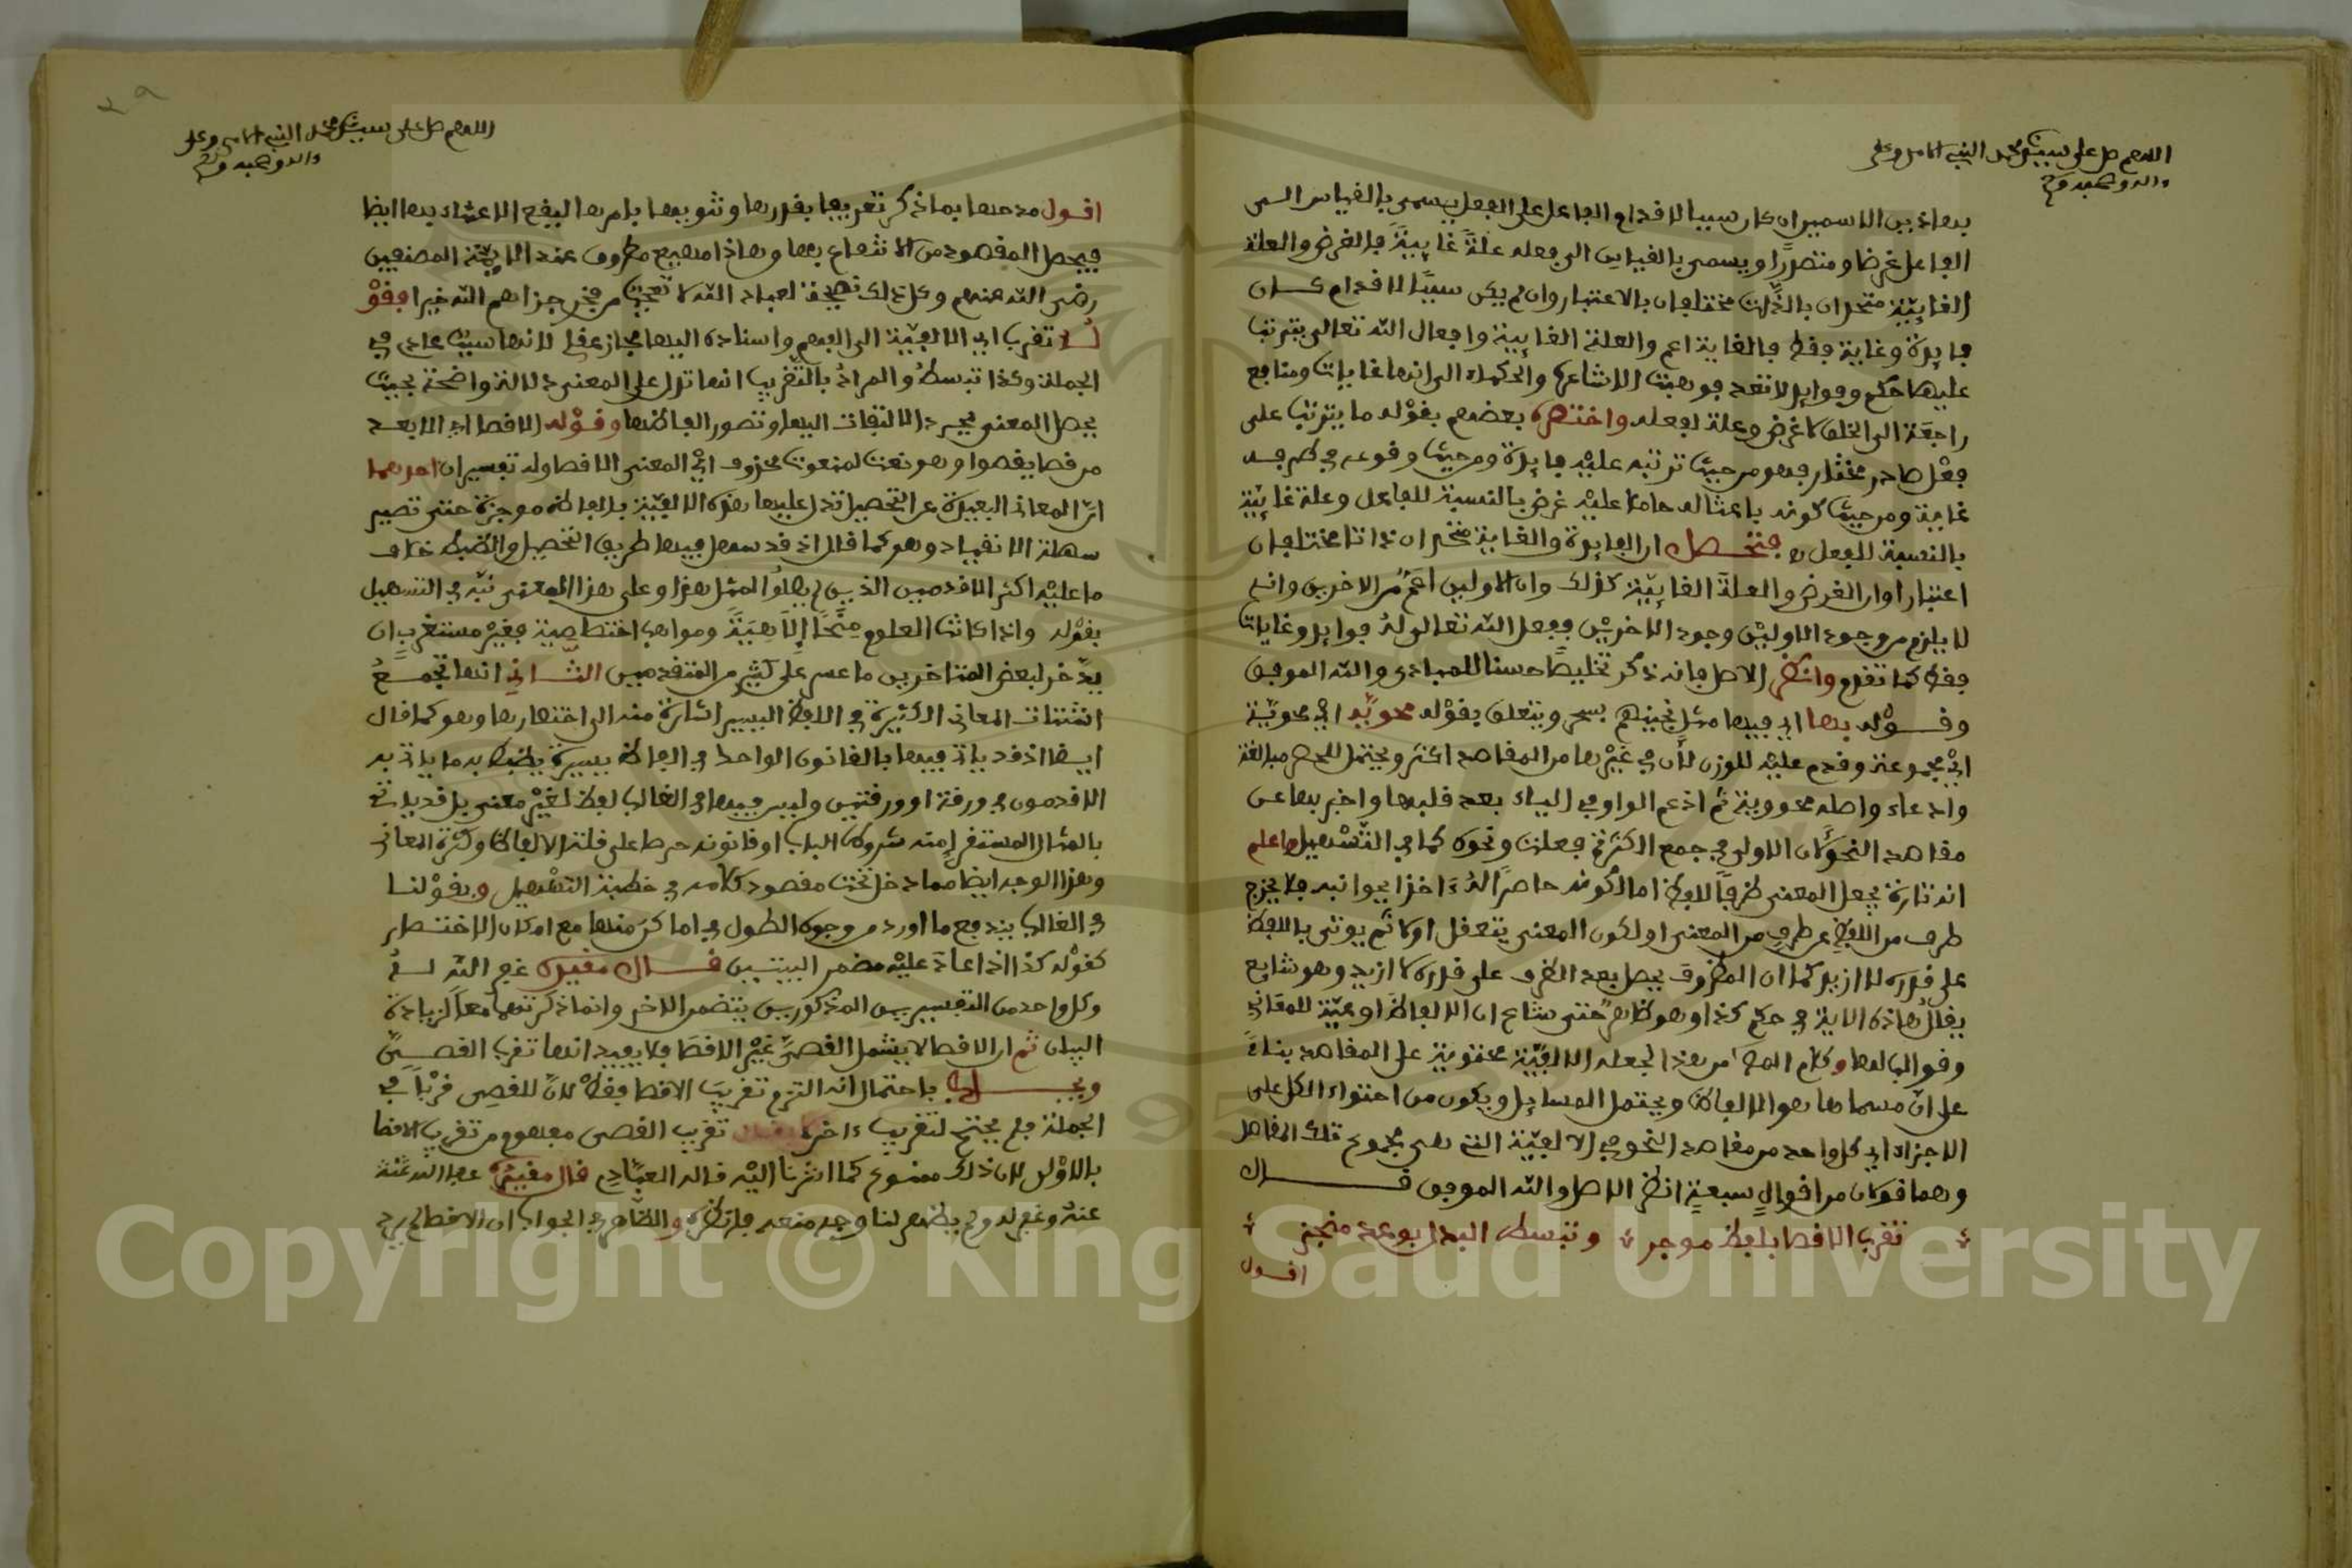 اللهم صل على سيدنا محمد النبي الامي وعلى
واله وصحبه وسلم
بهاذين الاسمين ان كان سببا لاقدام الفاعل على الفعل يسمى بالقياس الى
الفاعل غرضا ومقصدا ويسمى بالقياس الى فعله علة غايية فالغرض والعلة
الغايية متحدان بالذات مختلفان بالاعتبار وان لم يكن سببا للاقدام كان
فايدة وغاية فقط فالغاية اعم والعلة الغايية وافعال الله تعالى يترتب
عليها حكم وفوايد لا تعد فذهبت الاشاعرة والحكماء الى انها غايات ومنافع
راجعة الى الخلق لا غرض وعلة لفعله واختصره بعضهم بقوله ما يترتب على
فعل صادر مختار فهو من حيث ترتبه عليه فايدة ومن حيث وقوعه في طرفه
غاية ومن حيث كونه باعثا له حاملا عليه غرض بالنسبة للفاعل وعلة غايية
بالنسبة للفعل فتحصل ان الفايدة والغاية متحدان ذاتا مختلفان
اعتبارا وان الغرض والعلة الغايية كذلك وان الاولين اعم من الاخرين وانه
لا يلزم من وجود الاولين وجود الاخرين ففعل الله تعالى له فوايد وغايات
فقط كما تقدم وانظر الاصل فانه ذكر تخليصا حسنا للمبادي والله الموفق
وقوله بها اي فيها مثل نجيناهم بسحر ويتعلق بقوله محويه اي محوية
اي مجموعة وقدم عليه للوزن لان في غيرها من المقاصد اكثر ويحتمل للحصر مبالغة
وادعاء واصله محووية ثم ادغم الواو في الياء بعد قلبها واخبر بها عن
مقاصد النحو لان الاولى في جمع الكثرة فعلت ونحوه كما في التسهيل واعلم
انه تارة يجعل المعنى ظرفا للفظ اما لكونه حاصرا له ءاخذا بجوانبه فلا يخرج
طرف من اللفظ عن طرف من المعنى او لكون المعنى يتعقل اولا ثم يوتى باللفظ
على قدره لا ازيد كما ان المظروف يحصل بعد الظرف على قدره لا ازيد وهو شايع
يقال هاذه الاية في حكم كذا وهو ظاهر حتى شاع ان الالفاظ اوعية للمعاني
وقوالب لها وكلام المص من هذا لجعله الالفية محتوية على المقاصد بناء
على ان مسماها هو الالفاظ ويحتمل المسايل ويكون من احتواء الكل على
الاجزاء اي كل واحد من مقاصد النحو في الالفية التي هي مجموع تلك المقاصد
وهما قولان من اقوال سبعة انظر الاصل والله الموفق قال
تقرب الاقصا بلفظ موجز وتبسط البذل بوعد منجز
اقول
اللهم صل على سيدنا محمد النبي الامي وعلى
واله وصحبه وسلم
اقول مدحها بما ذكر تعريفا بقدرها وتنويها بامرها ليقع الاعتناء بها ايضا
فيحصل المقصود من الانتفاع بها وهاذا مهيع مطروف عند الايمة المصنفين
رضي الله عنهم وكل ذلك نصيحة لعباد الله لا تبجح من فخر جزاهم الله خيرا فقو
له تقرب اي الالفية الى الفهم واسناده اليها مجاز عقلي لانها سبب عادي في
الجملة وكذا تبسط والمراد بالتقريب انها تدل على المعنى دلالة واضحة بحيث
يحصل المعنى بمجرد الالتفات اليها وتصور الفاظها وقوله الاقصا اي الابعد
من قصا يقصوا وهو نعت لمنعوت محذوف اي المعنى الاقصا وله تفسيران احدهما
ان المعاني البعيدة عن التحصيل تدل عليها هذه الالفية بالفاظ موجزة حتى تصير
سهلة الانقياد وهو كما قال اذ قد سهل فيها طريق التحصيل والضبط خلاف
ما عليه اكثر الاقدمين الذين لم يصلوا لمثل هذا وعلى هذا المعنى نبه في التسهيل
بقوله واذا كانت العلوم منحا الاهية ومواهب اختصاصية فغير مستغرب ان
يدخر لبعض المتاخرين ما عسر على كثير من المتقدمين الثاني انها تجمع
اشتات المعاني الكثيرة في اللفظ اليسير اشارة منه الى اختصارها وهو كما قال
ايضا اذ قد ياتي فيها بالقانون الواحد في الفاظ يسيرة يضبط به ما ياتي به
الاقدمون في ورقة او ورقتين وليس فيها في الغالب لفظ لغير معنى بل قد ياتي
بالمثال المستقرا منه شروط الباب او قانونه حرصا على قلة الالفاظ وكثرة المعاني
وهذا الوجه ايضا مما دخل تحت مقصود كلامه في خطبة التسهيل وبقولنا
في الغالب يندفع ما اورد من وجوه الطول في اماكن منها مع امكان الاختصار
كقوله كذا اذا عاد عليه مضمر البيتين قال مقيده غفر الله له
وكل واحد من التفسيرين المذكورين يتضمن الاخر وانما ذكرتهما معا لزيادة
البيان ثم ان الاقصا لا يشمل القصي غير الاقصا فلا يفيد انها تقرب القصي
ويجاب باحتمال انه التزم تقريب الاقصا فقط لان للقصي قربا في
الجملة فلم يحتج لتقريب ءاخر لا يقال تقريب القصي مفهوم من تقريب الاقصا
بالاولى لان ذلك ممنوع كما اشرنا اليه قاله العبادي قال مقيده عفا الله
عنه وغفر له ولم يظهر لنا وجه منعه فانظره والظاهر في الجواب ان الاقصا لم يرد